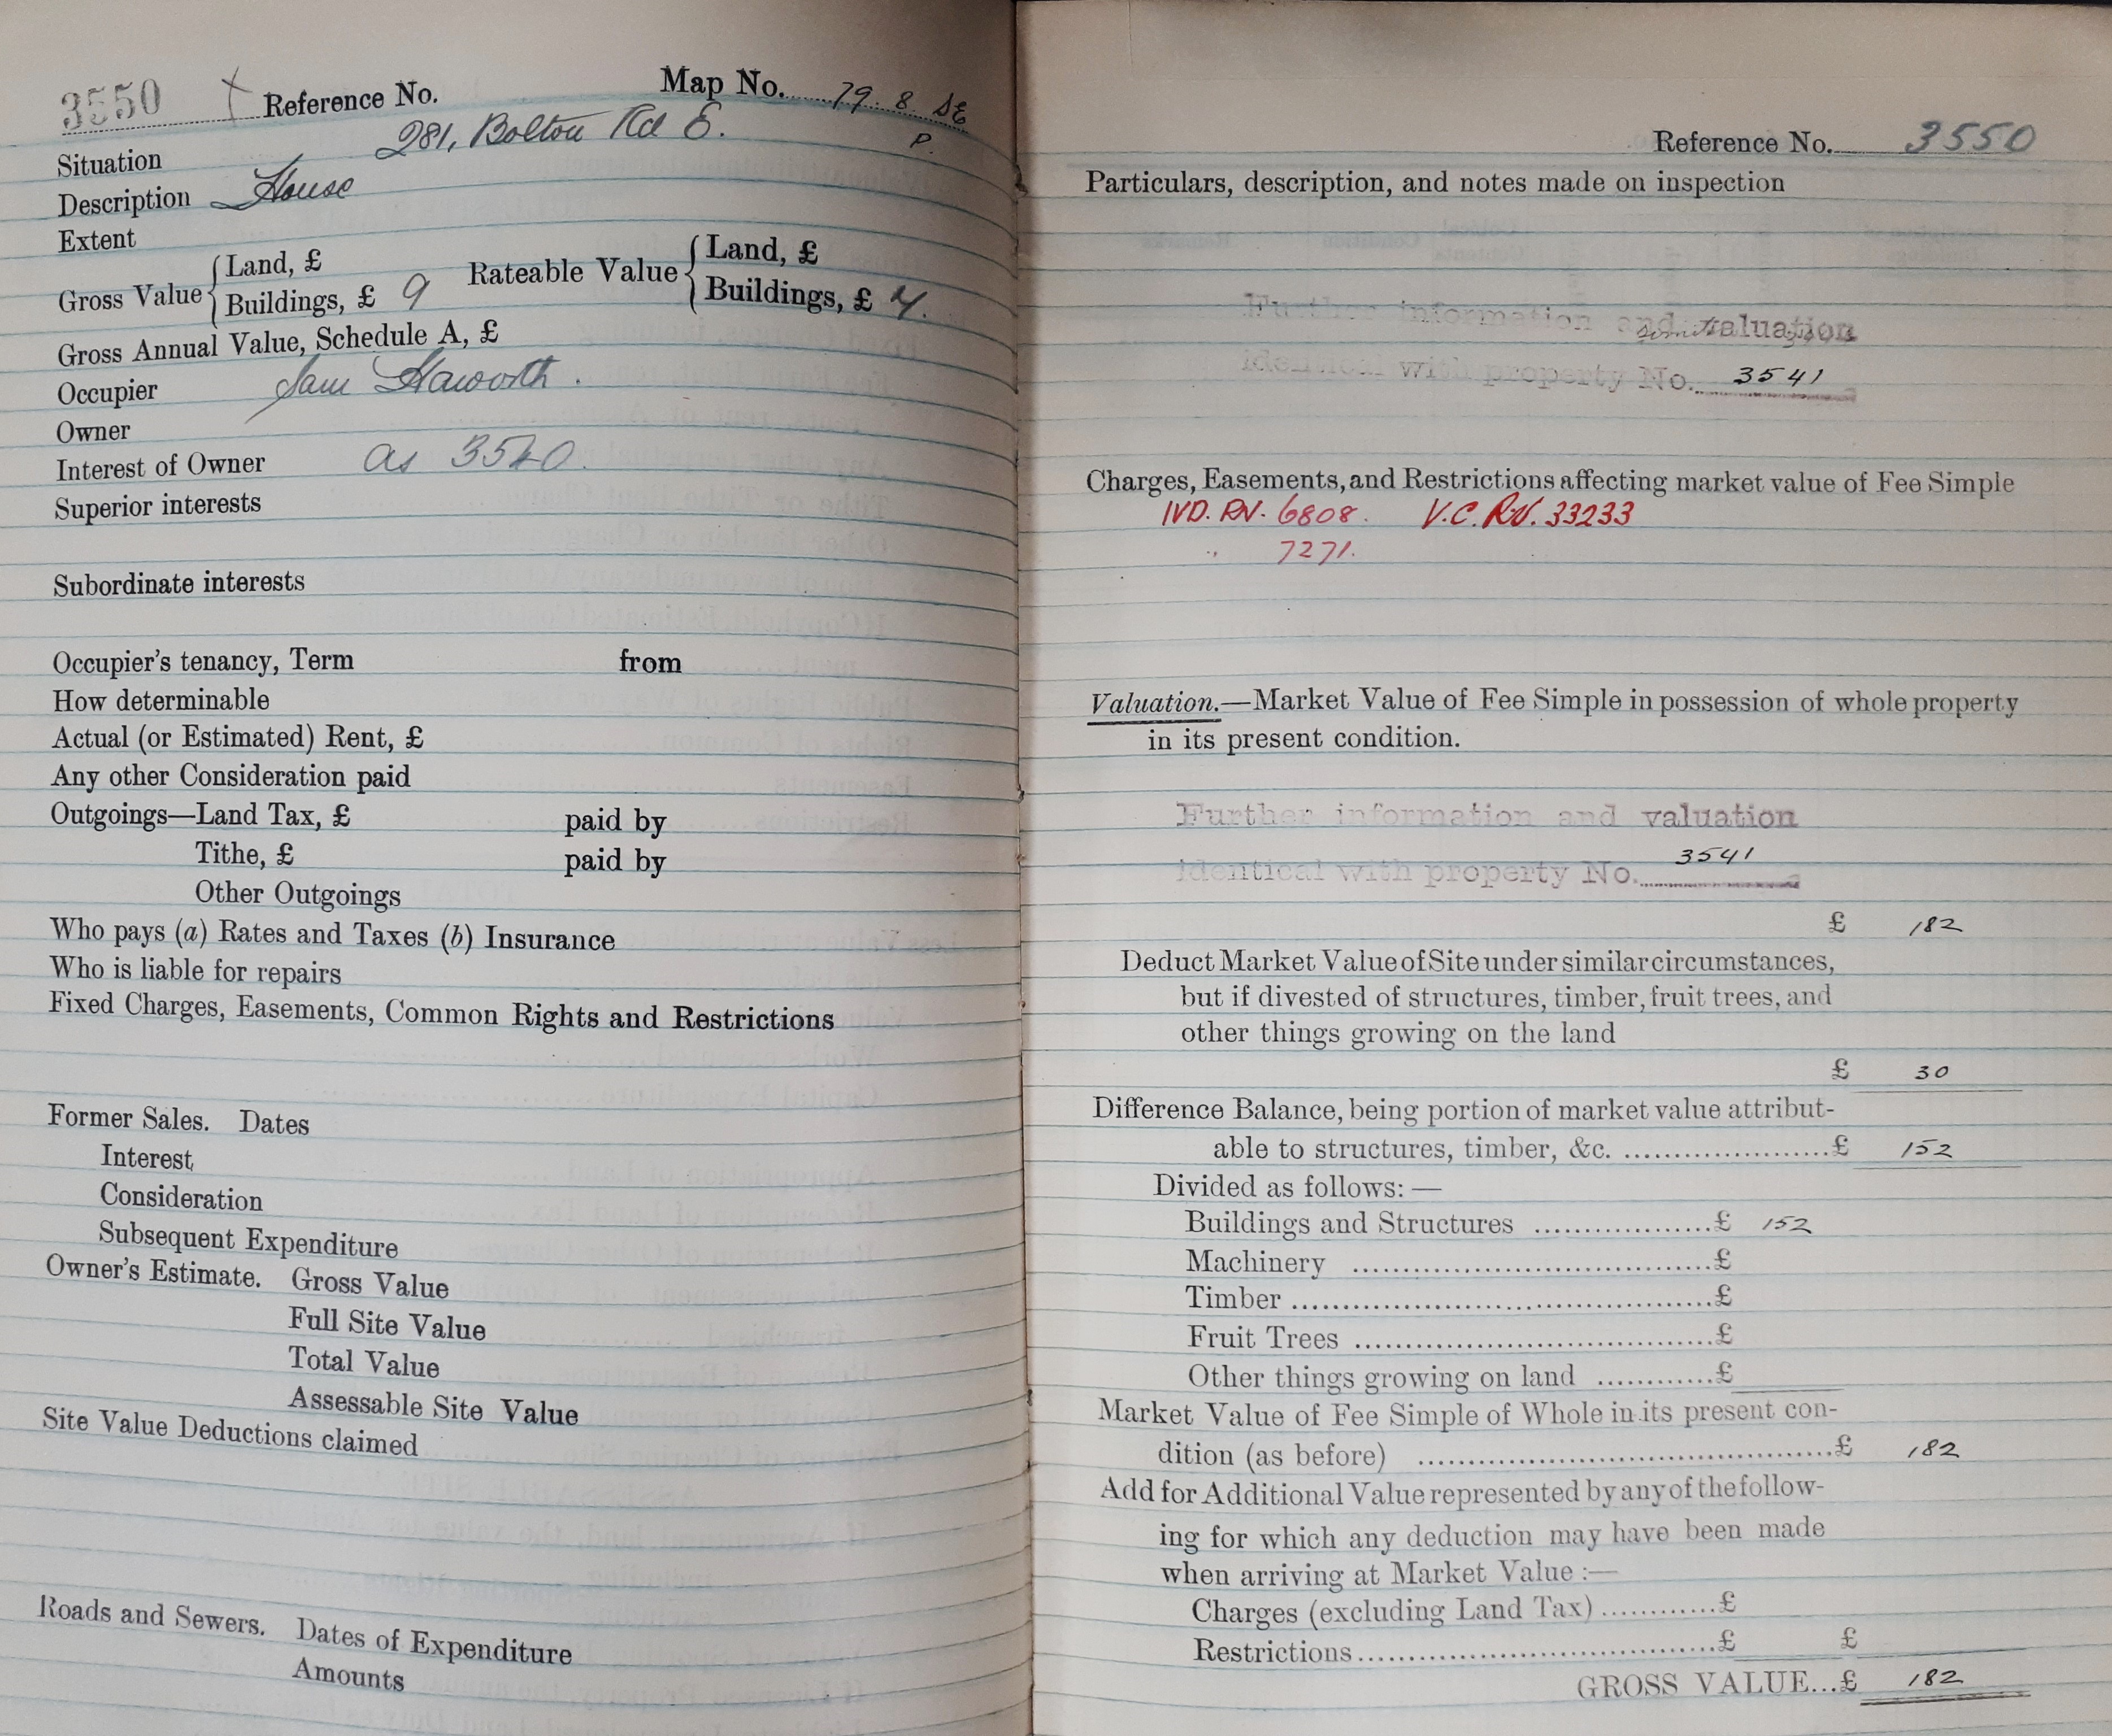 3550 Reference No. Map No. 79. 8 SE
P.
Situation 281, Bolton Rd E.
Description House
Extent
Gross Value { Land, £
Buildings, £ 9
Rateable Value { Land, £
Buildings, £ 7.
Gross Annual Value, Schedule A, £
Occupier Sam Haworth.
Owner
Interest of Owner as 3540.
Superior interests
Subordinate interests
Occupier's tenancy, Term from
How determinable
Actual (or Estimated) Rent, £
Any other Consideration paid
Outgoings—Land Tax, £ paid by
Tithe, £ paid by
Other Outgoings
Who pays (a) Rates and Taxes (b) Insurance
Who is liable for repairs
Fixed Charges, Easements, Common Rights and Restrictions
Former Sales. Dates
Interest
Consideration
Subsequent Expenditure
Owner's Estimate. Gross Value
Full Site Value
Total Value
Assessable Site Value
Site Value Deductions claimed
Roads and Sewers. Dates of Expenditure
Amounts
Reference No. 3550
Particulars, description, and notes made on inspection
Further information and valuation
identical with property No. 3541
Charges, Easements, and Restrictions affecting market value of Fee Simple
IVD. RN. 6808. V.C. RN. 33233
,, 7271.
Valuation.—Market Value of Fee Simple in possession of whole property
in its present condition.
Further information and valuation
identical with property No. 3541
£ 182
Deduct Market Value of Site under similar circumstances,
but if divested of structures, timber, fruit trees, and
other things growing on the land
£ 30
Difference Balance, being portion of market value attribut-
able to structures, timber, &c. ......................£ 152
Divided as follows:—
Buildings and Structures ...................£ 152
Machinery ......................................£
Timber .............................................£
Fruit Trees ......................................£
Other things growing on land ............£
Market Value of Fee Simple of Whole in its present con-
dition (as before) ............................................£ 182
Add for Additional Value represented by any of the follow-
ing for which any deduction may have been made
when arriving at Market Value :—
Charges (excluding Land Tax) ............£
Restrictions......................................£ £
GROSS VALUE...£ 182